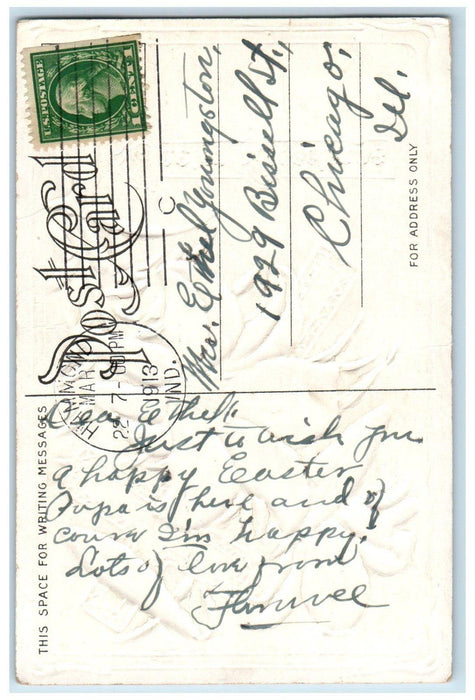 U.S. POSTAGE
1 CENT 1
Post Card
HAMMOND
MAR
22 7-30PM
1913
IND.
C
Mrs. Ethel Youngston,
1929 Bissell St.,
Chicago,
Ill.
FOR ADDRESS ONLY
THIS SPACE FOR WRITING MESSAGES
Dear Ethel:
Just to wish you
a happy Easter
Papa is here and of
course I'm happy.
Lots of love from